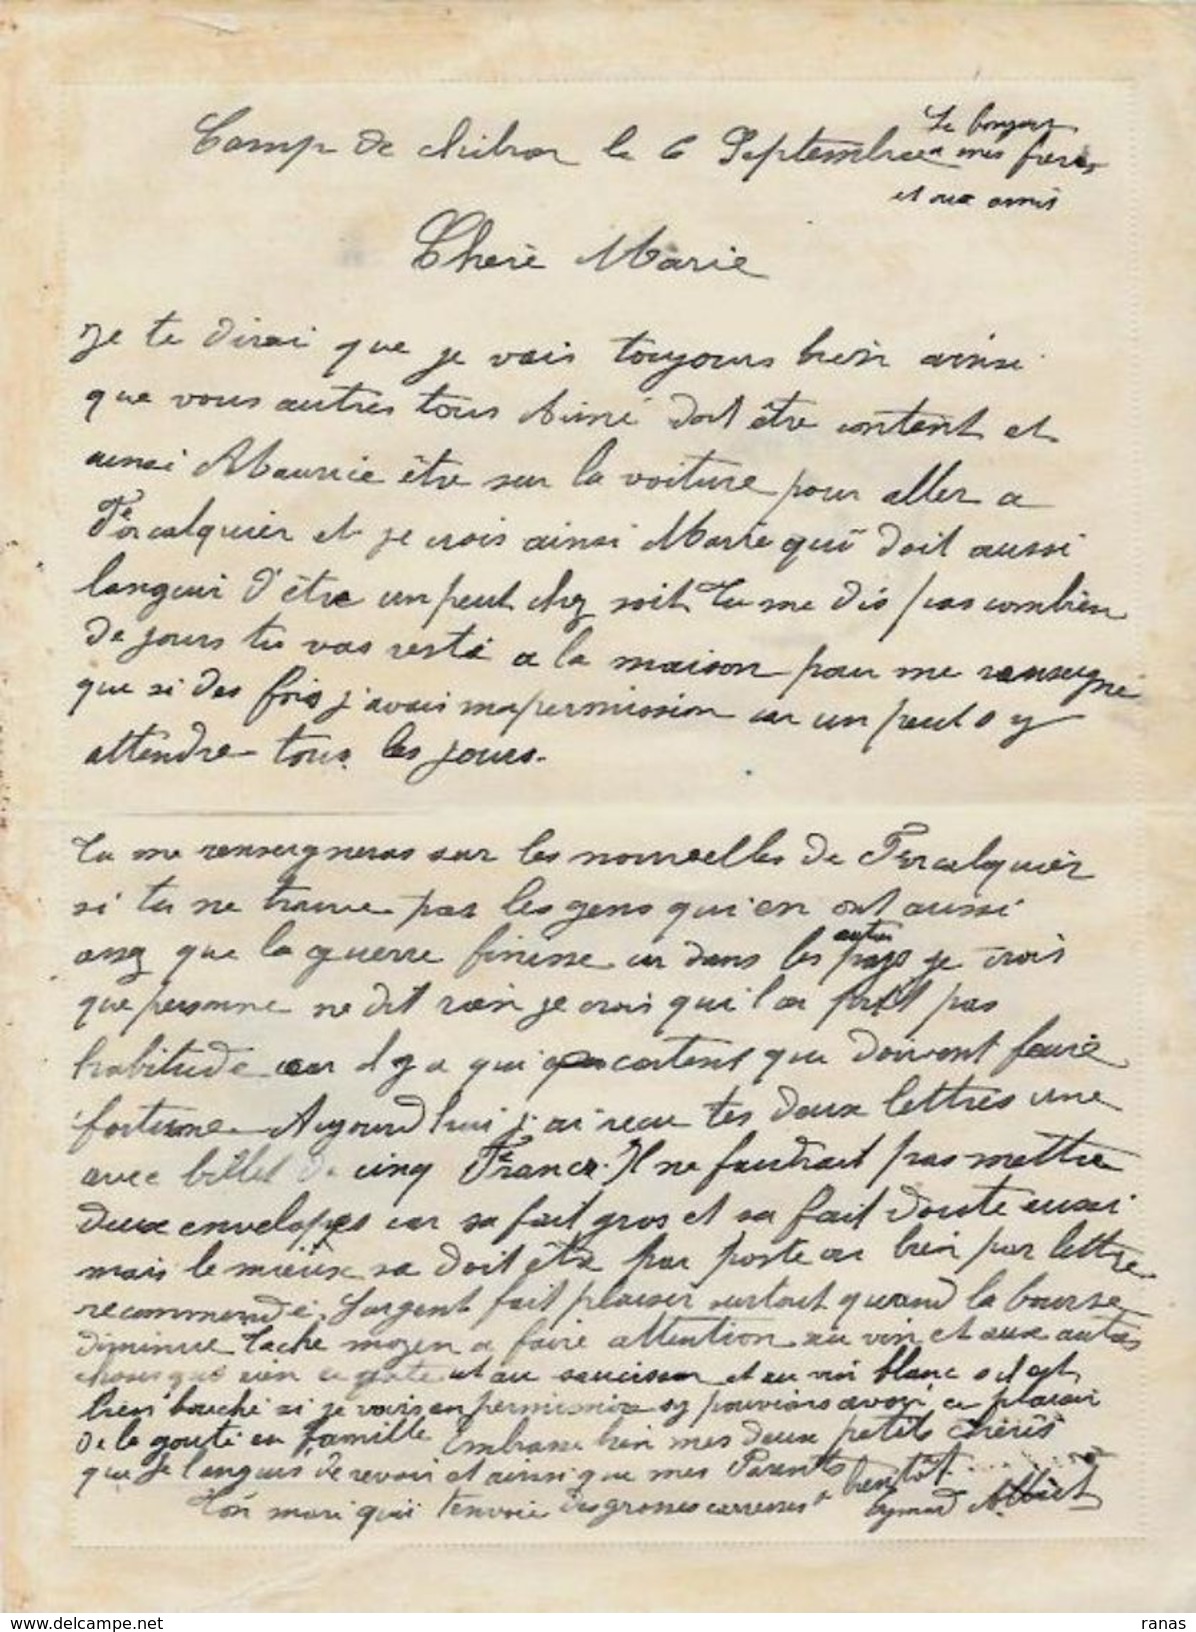 Camp de chibron le 6 Septembre
Le bonjour
a mes freres
et aux amis
Cherè Marie
Je te dirai que je vais toujours bien ainsi
que vous autres tous Aimé doit être content et
ainsi Maurice être sur la voiture pour aller a
Forcalquier et je crois ainsi Marie qui doit aussi
langui d'être un peut chez soit Tu me dis pas combien
de jours tu vas resté a la maison pour me renseigné
que si des fois j'avais ma permission car un peut s y
attendre tous les jours.
Tu me renseigneras sur les nouvelles de Forcalquier
si tu ne trouve pas les gens qui en ont aussi
assez que la guerre finisse car dans les autres pays je crois
que personne ne dit rien je crois qui l'on pas
habitude car il y a qui contens que doivent faire
fortune. Aujourd'hui j'ai recu tes deux lettres une
avec billet de cinq Francs. Il ne faudrait pas mettre
deux envelopes car sa fait gros et sa fait douté aussi
mais le mieux sa doit être par poste ou bien par lettre
recommendé. Largent fait plaisir surtout quand la bourse
diminue tache moyen a faire attention au vin et aux autres
choses que rien ce gate et au saucisson et au vin blanc s'il est
bien bouché si je vais en permission pouvions avoir ce plaisir
de le gouté en famille Embrasse bien mes deux petits chéris
que je langui de revoir et ainsi que mes Parents
Ton mari qui t'envoie des grosses caresses a bientôt
aymard Albert
delcampe.net
ranas